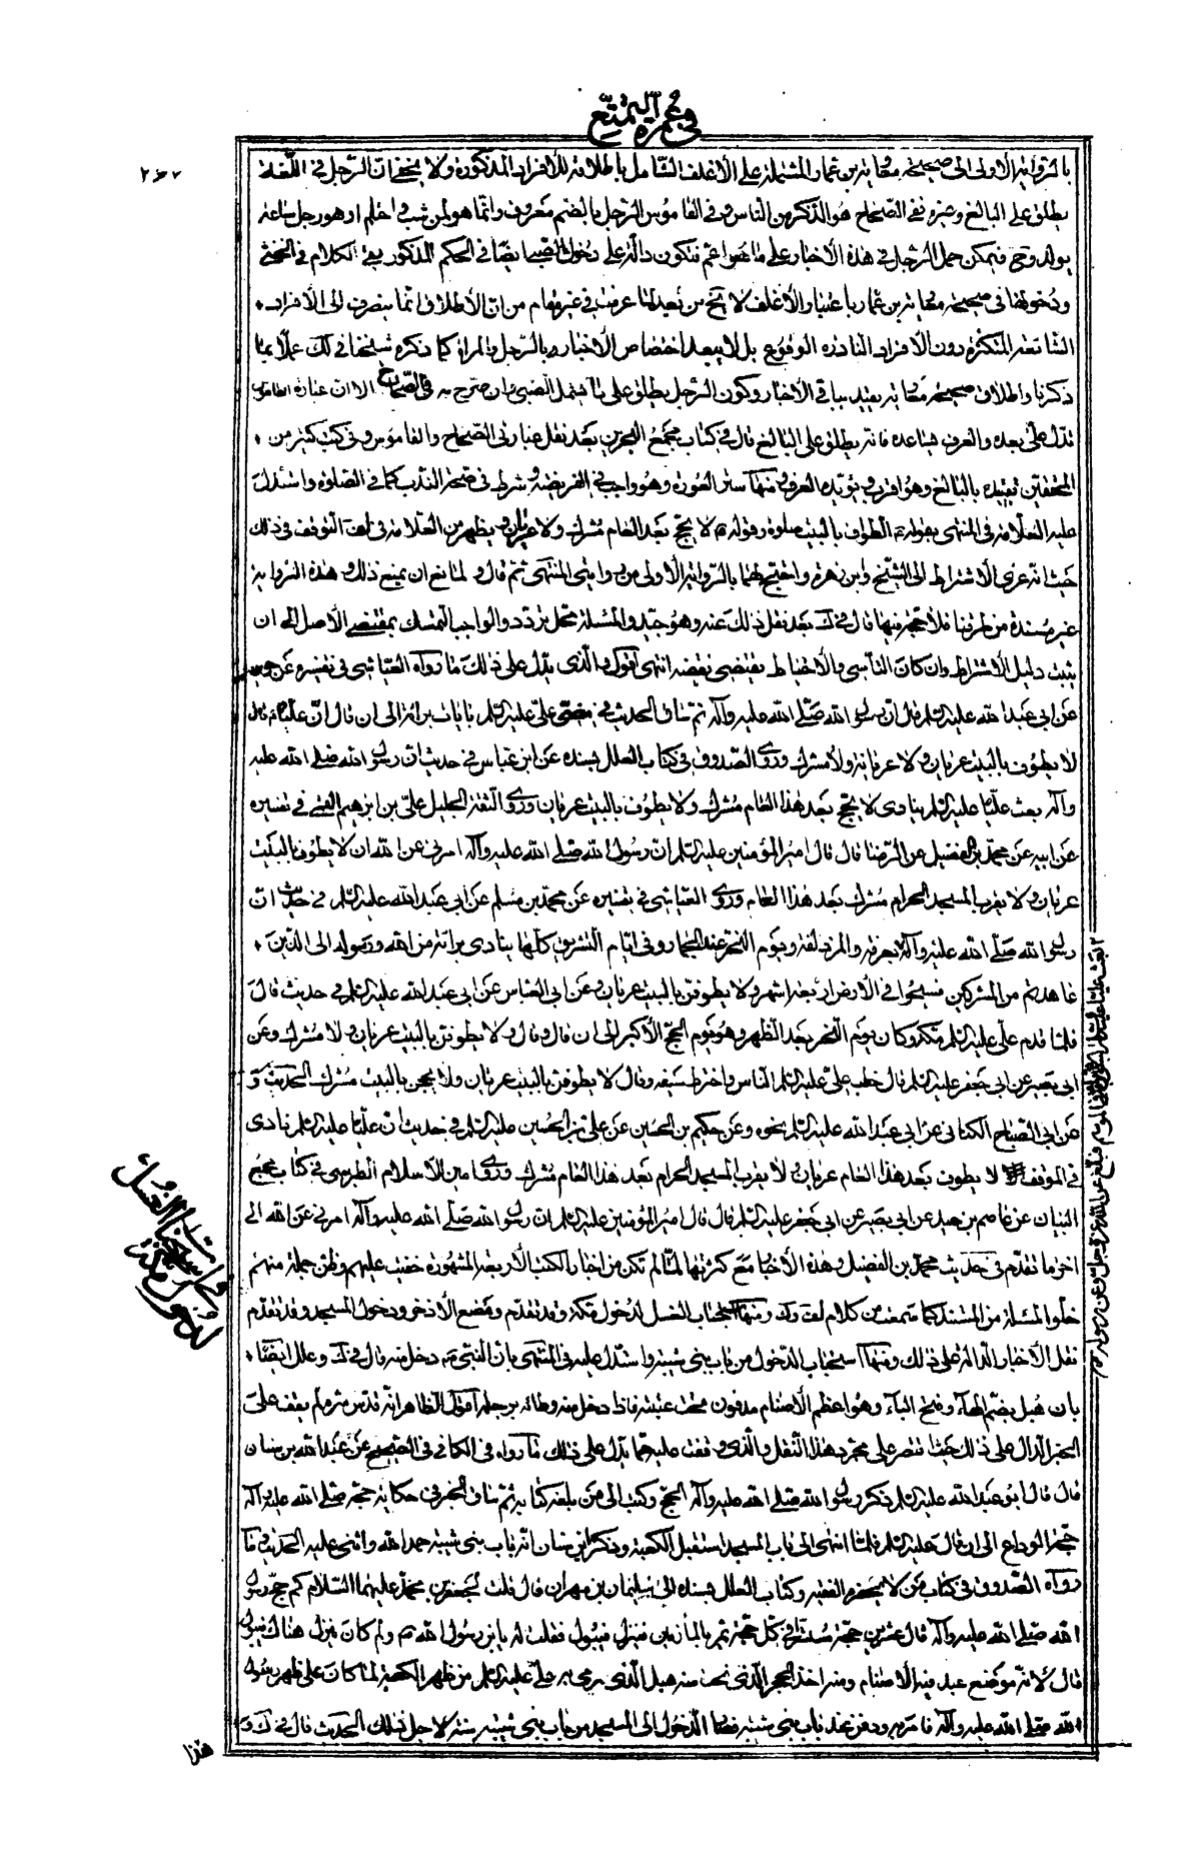 في عمرة التمتع
٢٦٧
بالرواية الأولى الى صحيحة معاوية بن عمار المشتملة على الأغلف الشامل باطلاقه للافراد المذكورة ولا يخفى ان الرجل في اللغة
يطلق على البالغ وغيره ففي الصحاح هو الذكر من الناس وفي القاموس الرجل بالضم معروف وانما هو لمن شب واحتلم او هو رجل ساعة
يولد وح فيمكن حمل الرجل في هذه الأخبار على ما هو اعم فتكون دالة على دخول الصبي ايضا في الحكم المذكور بقي الكلام في الخنثى
ودخولها في صحيحة معاوية بن عمار باعتبار الأغلف لا يخ من بعد لما عرفت في غير مقام من ان الاطلاق انما ينصرف الى الأفراد
الشائعة المتكثرة دون الأفراد النادرة الوقوع بل لا يبعد اختصاص الأخبار بالرجل والمراة كما ذكره شيخنا في لك عملا بما
ذكرنا واطلاق صحيحة معاوية يقيد بباقي الأخبار وكون الرجل يطلق على ما يشمل الصبي وان صرح به في الصحاح الا ان عبارة القاموس
تدل على بعده والعرف يساعده فانه يطلق على البالغ قال في كتاب مجمع البحرين بعد نقل عبارتي الصحاح والقاموس وفي كتب كثير من
المحققين تقييده بالبالغ وهو اقرب ويؤيده العرف ومنها ستر العورة وهو واجب في الفريضة وشرط في صحة الندب كما في الصلوة واستدل
عليه العلامة في المنتهى بقوله ص الطواف بالبيت صلوة وقوله ص لا يحج بعد العام مشرك ولا عريان ويظهر من العلامة في لف التوقف في ذلك
حيث انه عزى الاشتراط الى الشيخ وابن زهرة واحتج لهما بالرواية الأولى من روايتي المنتهى ثم قال ولمانع ان يمنع ذلك وهذه الرواية
غير مسندة من طرقنا فلا حجة فيها قال في ك بعد نقل ذلك عنه وهو جيد والمسئلة محل تردد والواجب التمسك بمقتضى الأصل الى ان
يثبت دليل الاشتراط وان كان التأسي والاحتياط يقتضي نقيضه انتهى اقول والذي يدل على ذلك ما رواه العياشي في تفسيره عن حريز
عن ابي عبد الله عليه السلم قال ان رسول الله صلى الله عليه وآله ثم ساق الحديث في مضي علي عليه السلم بآيات براءة الى ان قال ان عليا ع قال
لا يطوف بالبيت عريان ولا عريانة ولا مشرك وروى الصدوق في كتاب العلل بسنده عن ابن عباس في حديث ان رسول الله صلى الله عليه
وآله بعث عليا عليه السلم ينادي لا يحج بعد هذا العام مشرك ولا يطوف بالبيت عريان وروى الثقة الجليل علي بن ابرهيم القمي في تفسيره
عن ابيه عن محمد بن الفضيل عن الرضا قال قال امير المؤمنين عليه السلم ان رسول الله صلى الله عليه وآله امرني عن الله ان لا يطوف بالبيت
عريان ولا يقرب المسجد الحرام مشرك بعد هذا العام وروى العياشي في تفسيره عن محمد بن مسلم عن ابي عبد الله عليه السلم في حديث ان
رسول الله صلى الله عليه وآله بعرفة والمزدلفة ويوم النحر عند الجمار وفي ايام التشريق كلها ينادي براءة من الله ورسوله الى الذين
عاهدتم من المشركين فسيحوا في الأرض اربعة اشهر ولا يطوفن بالبيت عريان وعن ابي العباس عن ابي عبد الله عليه السلم في حديث قال
فلما قدم علي عليه السلم مكة وكان يوم النحر بعد الظهر وهو يوم الحج الأكبر الى ان قال وقال ولا يطوفن بالبيت عريان ولا مشرك وعن
ابي بصير عن ابي جعفر عليه السلم قال خطب علي عليه السلم الناس واخترط سيفه وقال لا يطوفن بالبيت عريان ولا يحجن بالبيت مشرك الحديث و
عن ابي الصباح الكناني عن ابي عبد الله عليه السلم نحوه وعن حكيم بن الحسين عن علي بن الحسين عليه السلم في حديث ان عليا عليه السلم نادى
في الموقف لا يطوف بعد هذا العام عريان ولا يقرب المسجد الحرام بعد هذا العام مشرك وروى امين الاسلام الطبرسي في كتاب مجمع
البيان عن عاصم بن حميد عن ابي بصير عن ابي جعفر عليه السلم قال قال امير المؤمنين عليه السلم ان رسول الله صلى الله عليه وآله امرني عن الله الى
اخر ما تقدم في حديث محمد بن الفضيل وهذه الأخبار مع كثرتها لما لم تكن من اخبار الكتب الأربعة المشهورة خفيت عليهم وظن جملة منهم
خلو المسئلة من المستند كما سمعت من كلام لف وك ومنها استحباب الغسل لدخول مكة وقد تقدم ومضغ الاذخر ودخول المسجد وقد تقدم
نقل الأخبار الدالة على ذلك ومنها استحباب الدخول من باب بني شيبة واستدل عليه في المنتهى بان النبي ص دخل منه قال في ك وعلل ايضا
بان هبل بضم الهاء وفتح الباء وهو اعظم الأصنام مدفون تحت عتبته فاذا دخل منه وطأه برجله اقول الظاهر انه قدس سره لم يقف على
الخبر الدال على ذلك حيث اقتصر على مجرد هذا النقل والذي وقفت عليه مما يدل على ذلك ما رواه في الكافي في الصحيح عن عبد الله بن سنان
قال قال ابو عبد الله عليه السلم ذكر رسول الله صلى الله عليه وآله الحج وكتب الى من بلغه كتابه ثم ساق الخبر في حكاية حجة صلى الله عليه وآله
حجة الوداع الى ان قال عليه السلم فلما انتهى الى باب المسجد استقبل الكعبة وذكر ابن سنان انه باب بني شيبة فحمد الله واثنى عليه الحديث وما
رواه الصدوق في كتاب من لا يحضره الفقيه وكتاب العلل بسنده الى سليمان بن مهران قال قلت لجعفر بن محمد عليهما السلام كم حج رسول
الله صلى الله عليه وآله قال عشرين حجة مستترا في كل حجة يمر بالمأزمين فينزل فيبول فقلت له يابن رسول الله ص ولم كان ينزل هناك فيبول
قال لأنه موضع عبد فيه الأصنام ومنه اخذ الحجر الذي نحت منه هبل الذي رمى به علي عليه السلم من ظهر الكعبة لما كان على ظهر رسول
الله صلى الله عليه وآله فامر به فدفن عند باب بني شيبة فصار الدخول الى المسجد من باب بني شيبة سنة لأجل ذلك الحديث قال في ك و
هذا
لدخول مكة